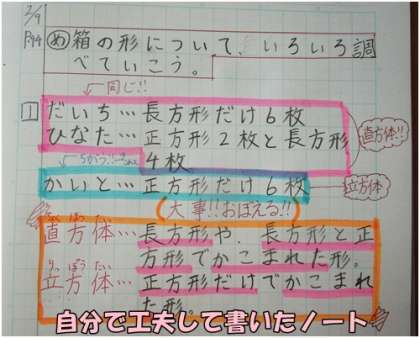 2/9
P94
め 箱の形について、いろいろ調
べていこう。
同じ!!
1 だいち…長方形だけ6枚
ひなた…正方形2枚と長方形
4枚
直方体!!
かいと…正方形だけ6枚
立方体
大事!!おぼえる!!
ちょくほうたい
直方体…長方形や、長方形と正
方形でかこまれた形。
りっぽうたい
立方体…正方形だけでかこまれ
た形。
自分で工夫して書いたノート